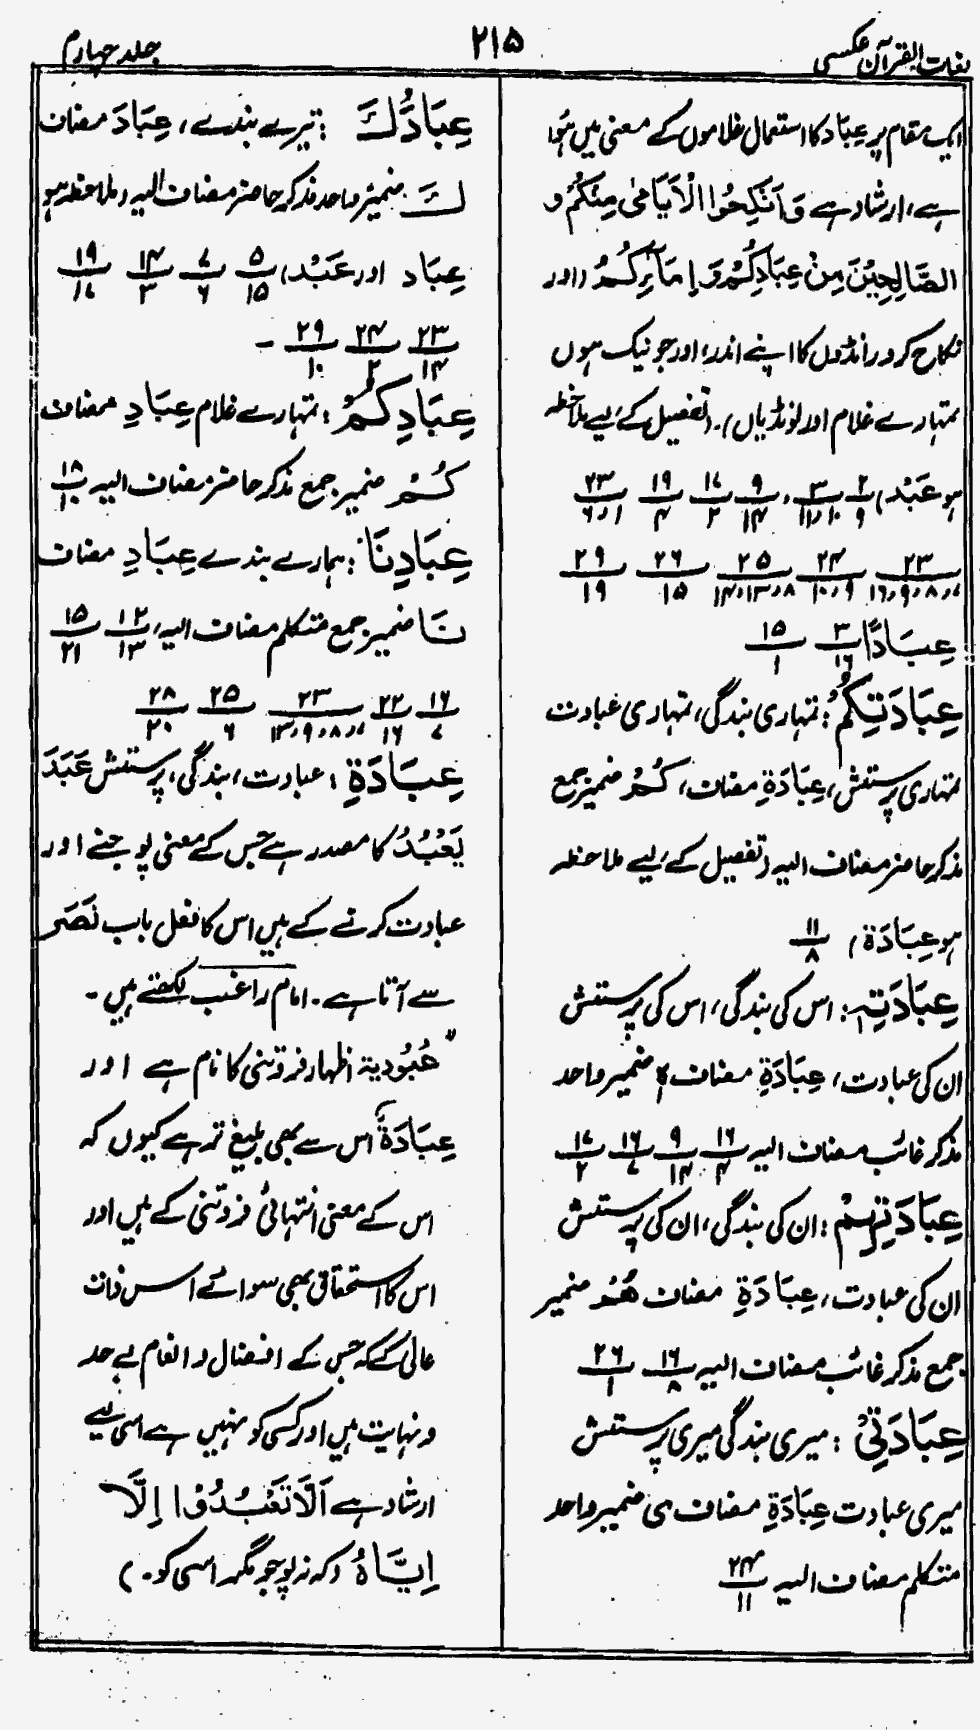 لغات القرآن عکسی
۲۱۵
جلد چہارم
ایک مقام پر عِبَاد کا استعمال غلاموں کے معنی میں ہُوا
ہے، ارشاد ہے وَاَنْکِحُوا الْاَیَامٰی مِنْکُمْ و
الصَّالِحِیْنَ مِنْ عِبَادِکُمْ وَ اِمَآئِکُمْ (اور
نکاح کر دو رانڈوں کا اپنے اندر، اور جو نیک ہوں
تمہارے غلام اور لونڈیاں)۔ (تفصیل کے لیے ملاحظہ
ہو عَبْد) ۲/۹ ۳/۱۰،۱۱، ۹/۱۴ ۱۷/۲ ۱۹/۴ ۲۳/۱،۶
۲۳/۷،۸،۹،۱۶ ۲۴/۹،۱۰ ۲۵/۸،۱۳،۱۴ ۲۶/۱۵ ۲۹/۱۹
عِبَادًا ۳/۱۶ ۱۵/۱
عِبَادَتِکُمْ: تمہاری بندگی، تمہاری عبادت
تمہاری پرستش، عِبَادَةِ مضاف، کُمْ ضمیر جمع
مذکر حاضر مضاف الیہ (تفصیل کے لیے ملاحظہ
ہو عِبَادَة) ۱۱/۸
عِبَادَتِہٖ: اس کی بندگی، اس کی پرستش
ان کی عبادت، عِبَادَةِ مضاف ہٖ ضمیر واحد
مذکر غائب مضاف الیہ ۱۶/۴ ۹/۱۴ ۱۶/۷ ۱۷/۲
عِبَادَتِہِمْ: ان کی بندگی، ان کی پرستش
ان کی عبادت، عِبَادَةِ مضاف ھُمْ ضمیر
جمع مذکر غائب مضاف الیہ ۱۶/۸ ۲۶/۱
عِبَادَتِیْ: میری بندگی میری پرستش
میری عبادت عِبَادَةِ مضاف ی ضمیر واحد
متکلم مضاف الیہ ۲۴/۱۱
عِبَادُكَ: تیرے بندے، عِبَادَ مضاف
كَ ضمیر واحد مذکر حاضر مضاف الیہ (ملاحظہ ہو
عِبَاد اور عَبْد) ۵/۱۵ ۷/۶ ۱۴/۳ ۱۹/۱۷
۲۳/۱۴ ۲۴/۲ ۲۹/۱۰ ۔
عِبَادِکُمْ: تمہارے غلام عِبَادِ مضاف
کُمْ ضمیر جمع مذکر حاضر مضاف الیہ ۱۸/۱۰
عِبَادِنَا: ہمارے بندے عِبَادِ مضاف
نَا ضمیر جمع متکلم مضاف الیہ، ۱۲/۱۳ ۱۵/۲۱
۱۶/۷ ۲۲/۱۶ ۲۳/۷،۸،۹،۱۳ ۲۵/۶ ۲۸/۲۰
عِبَادَةِ: عبادت، بندگی، پرستش عَبَدَ
یَعْبُدُ کا مصدر ہے جس کے معنی پوجنے اور
عبادت کرنے کے ہیں اس کا فعل باب نَصَرَ
سے آتا ہے۔ امام راغب لکھتے ہیں۔
”عُبُودیة اظہار فروتنی کا نام ہے اور
عِبَادَةٌ اس سے بھی بلیغ تر ہے کیوں کہ
اس کے معنی انتہائی فروتنی کے ہیں اور
اس کا استحقاق بھی سوائے اس ذات
عالی کے کہ جس کے افضال و انعام بے حد
و نہایت ہیں اور کسی کو نہیں ہے اسی لیے
ارشاد ہے اَلَّا تَعْبُدُوْا اِلَّا
اِیَّاہُ (کہ نہ پوجو مگر اسی کو۔)